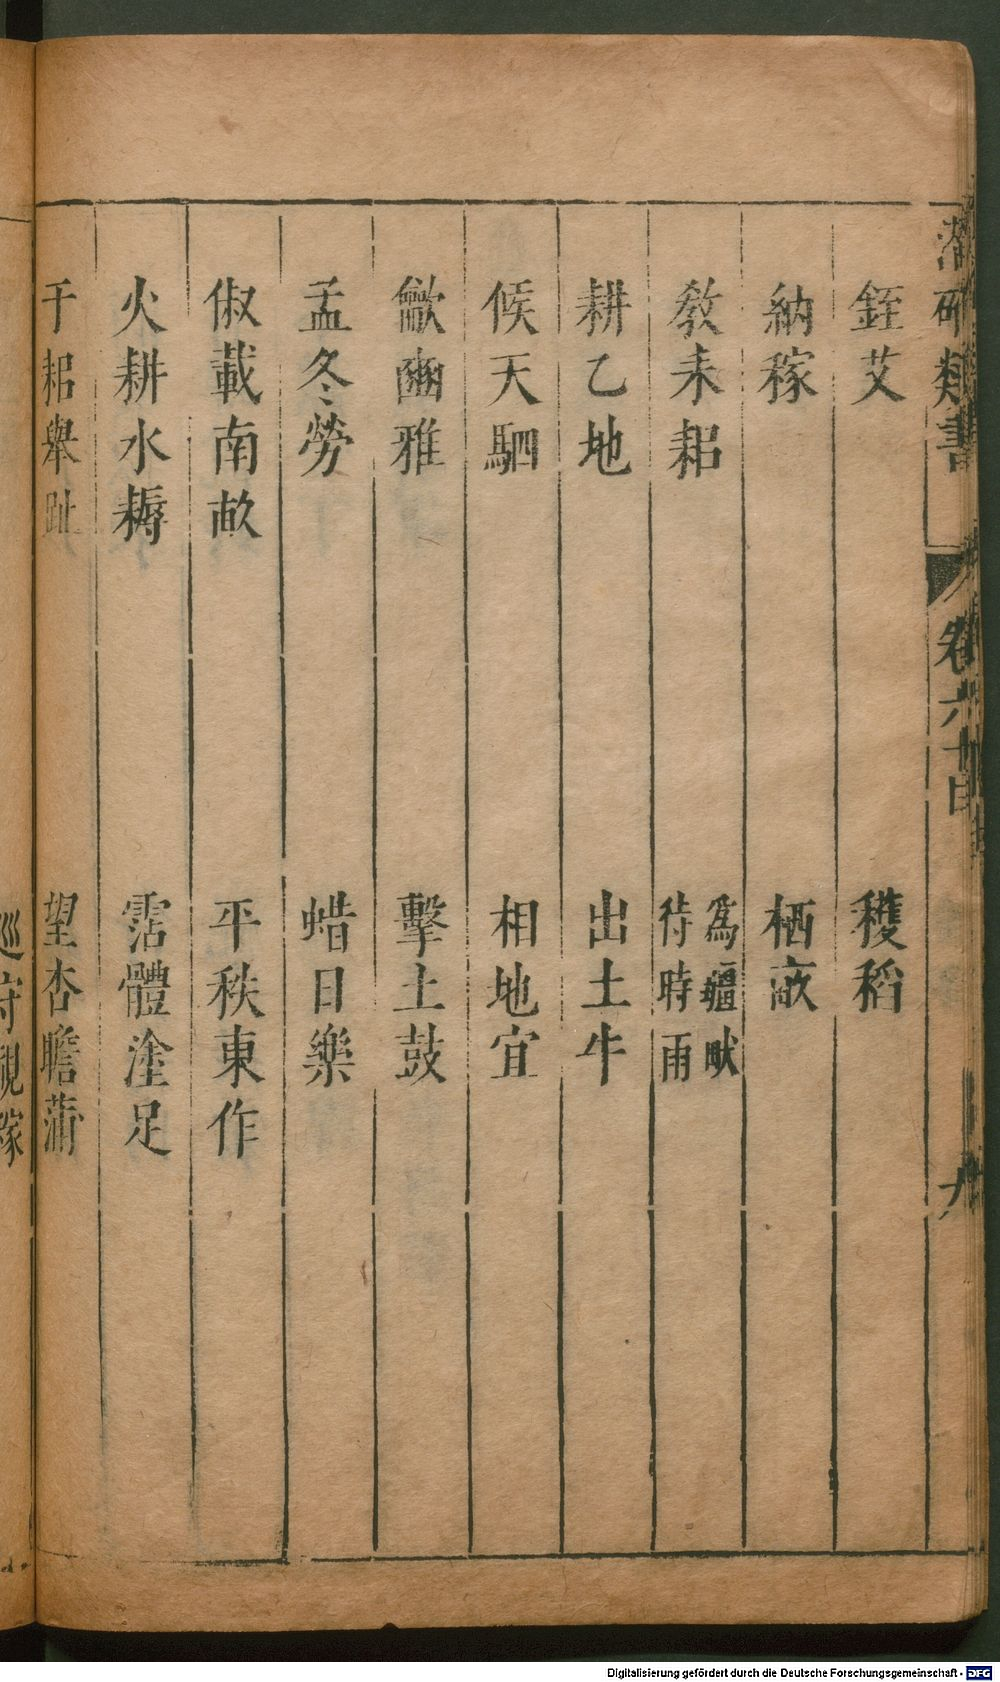 潛确類書 卷六十目
銍艾 穫稻
納稼 栖畝
教耒耜 爲疆畎
待時雨
耕乙地 出土牛
候天駟 相地宜
龡豳雅 擊土鼓
孟冬勞 蜡日樂
俶載南畝 平秩東作
火耕水耨 霑體塗足
于耜舉趾 望杏瞻蒲
Digitalisierung gefördert durch die Deutsche Forschungsgemeinschaft - DFG